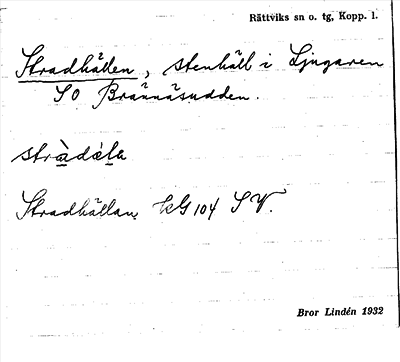 Rättviks sn o. tg, Kopp. l.
Stradhällen, stenhäll i Ljugaren
SO Brännäsudden.
stràdèla
Stradhällan, kG 104 SV.
Bror Lindén 1932